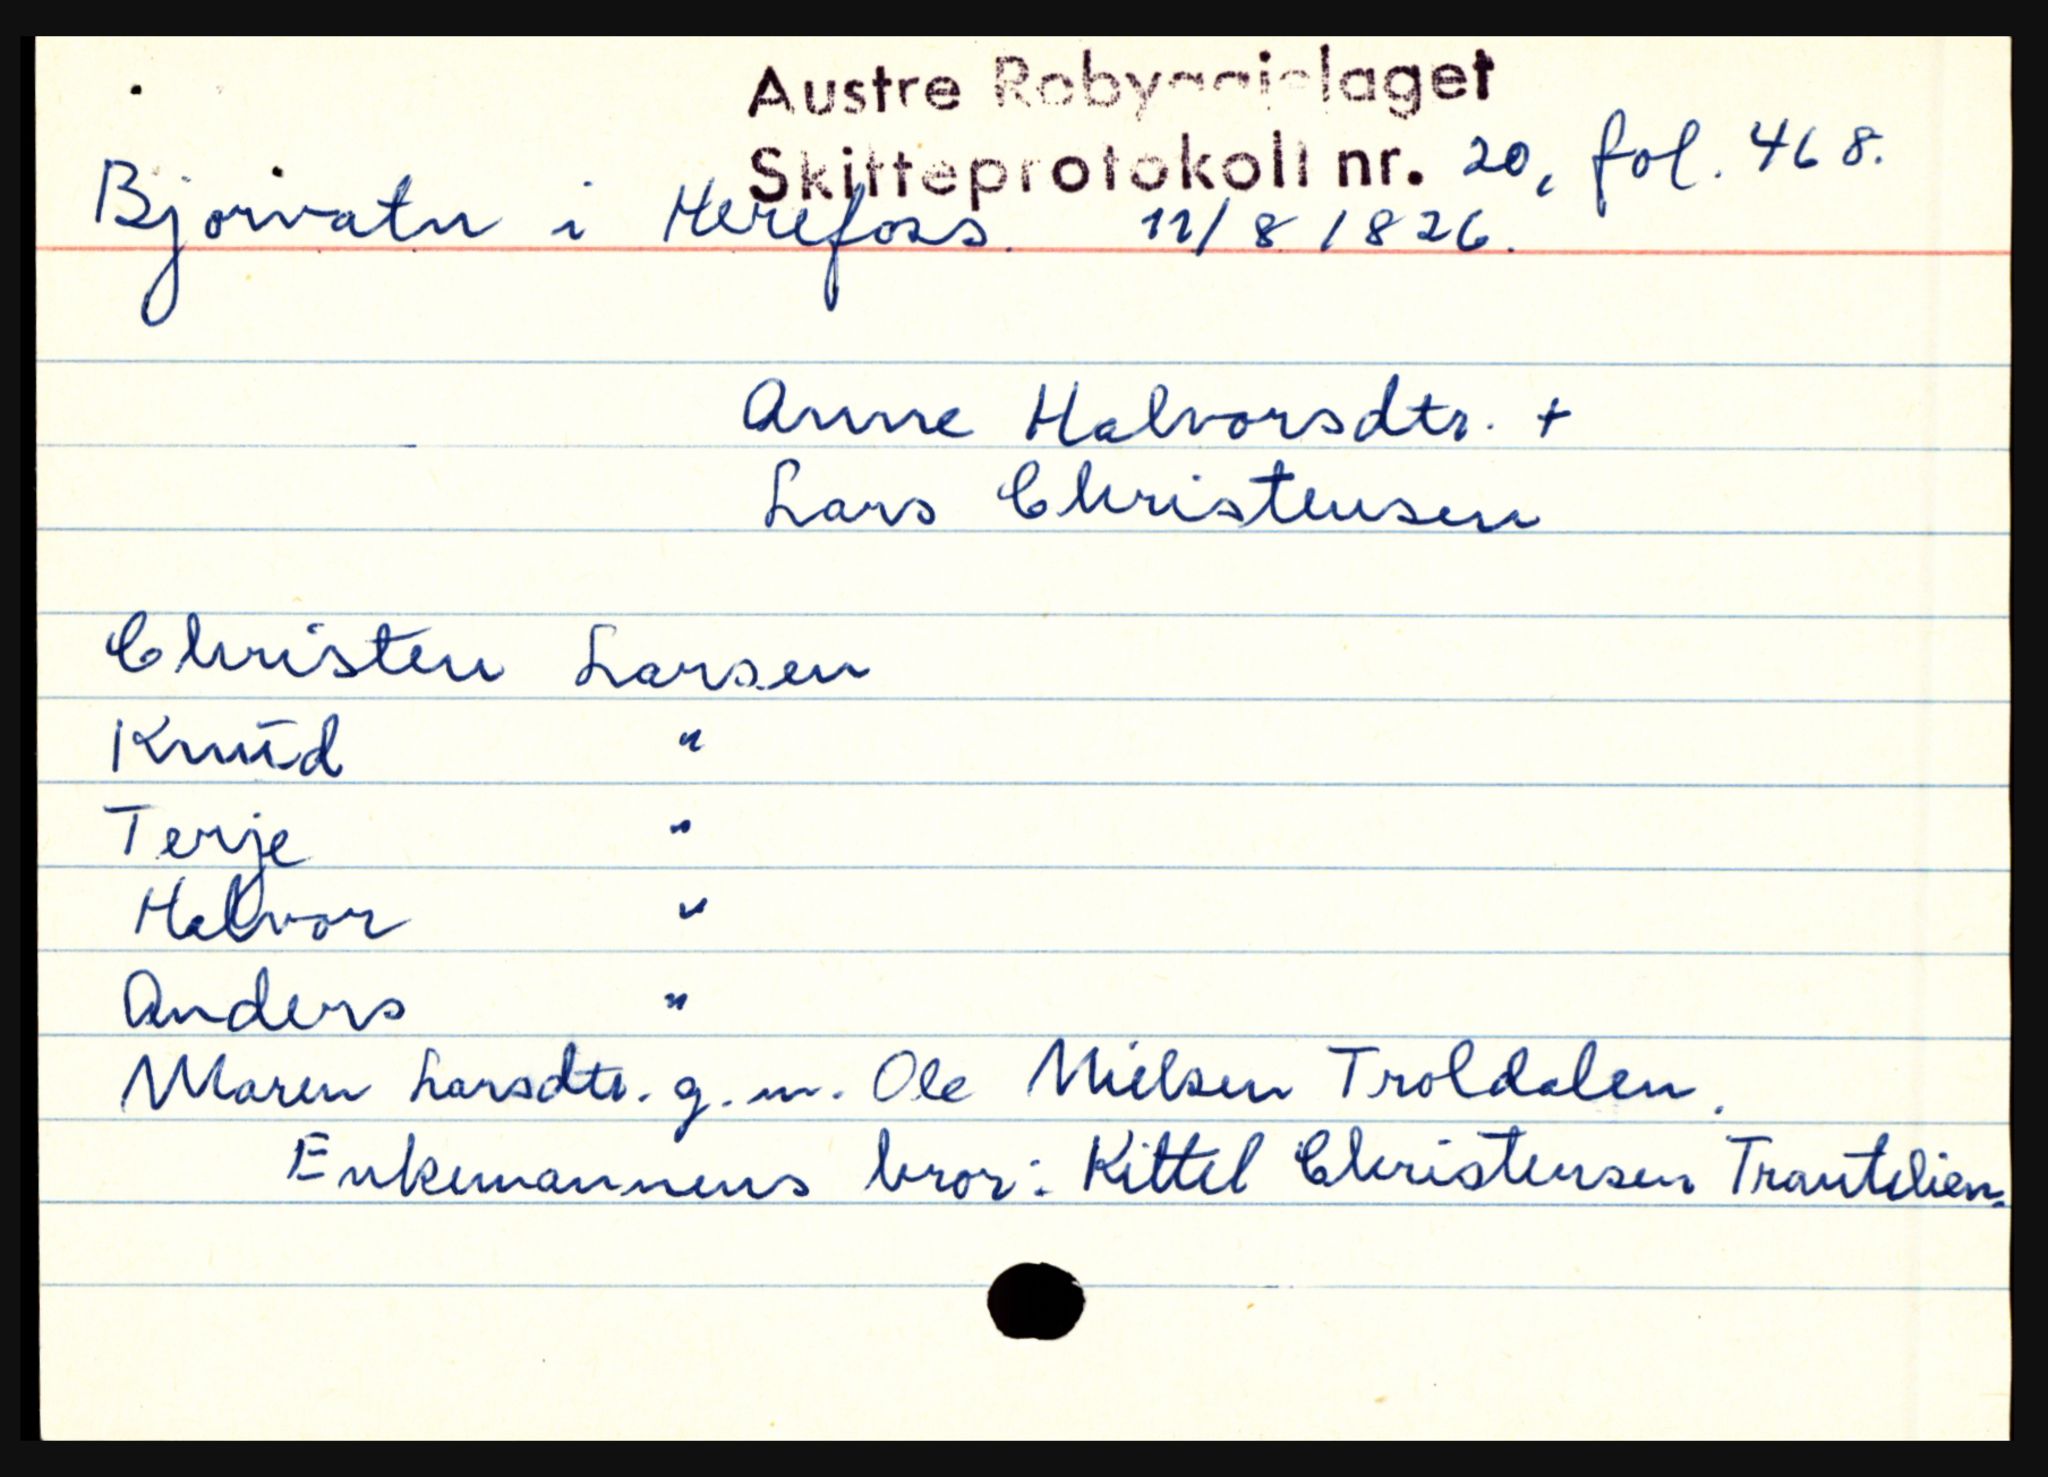 Austre Robyggjelaget
Skifteprotokoll nr. 20, fol. 468.
Bjorvatn i Herefoss. 11/8 1826.
Anne Halvorsdtr. +
Lars Christensen
Christen Larsen
Knud "
Terje "
Halvor "
Anders "
Maren Larsdtr. g. m. Ole Nielsen Troldalen.
Enkemannens bror: Kittel Christensen Trantelien.